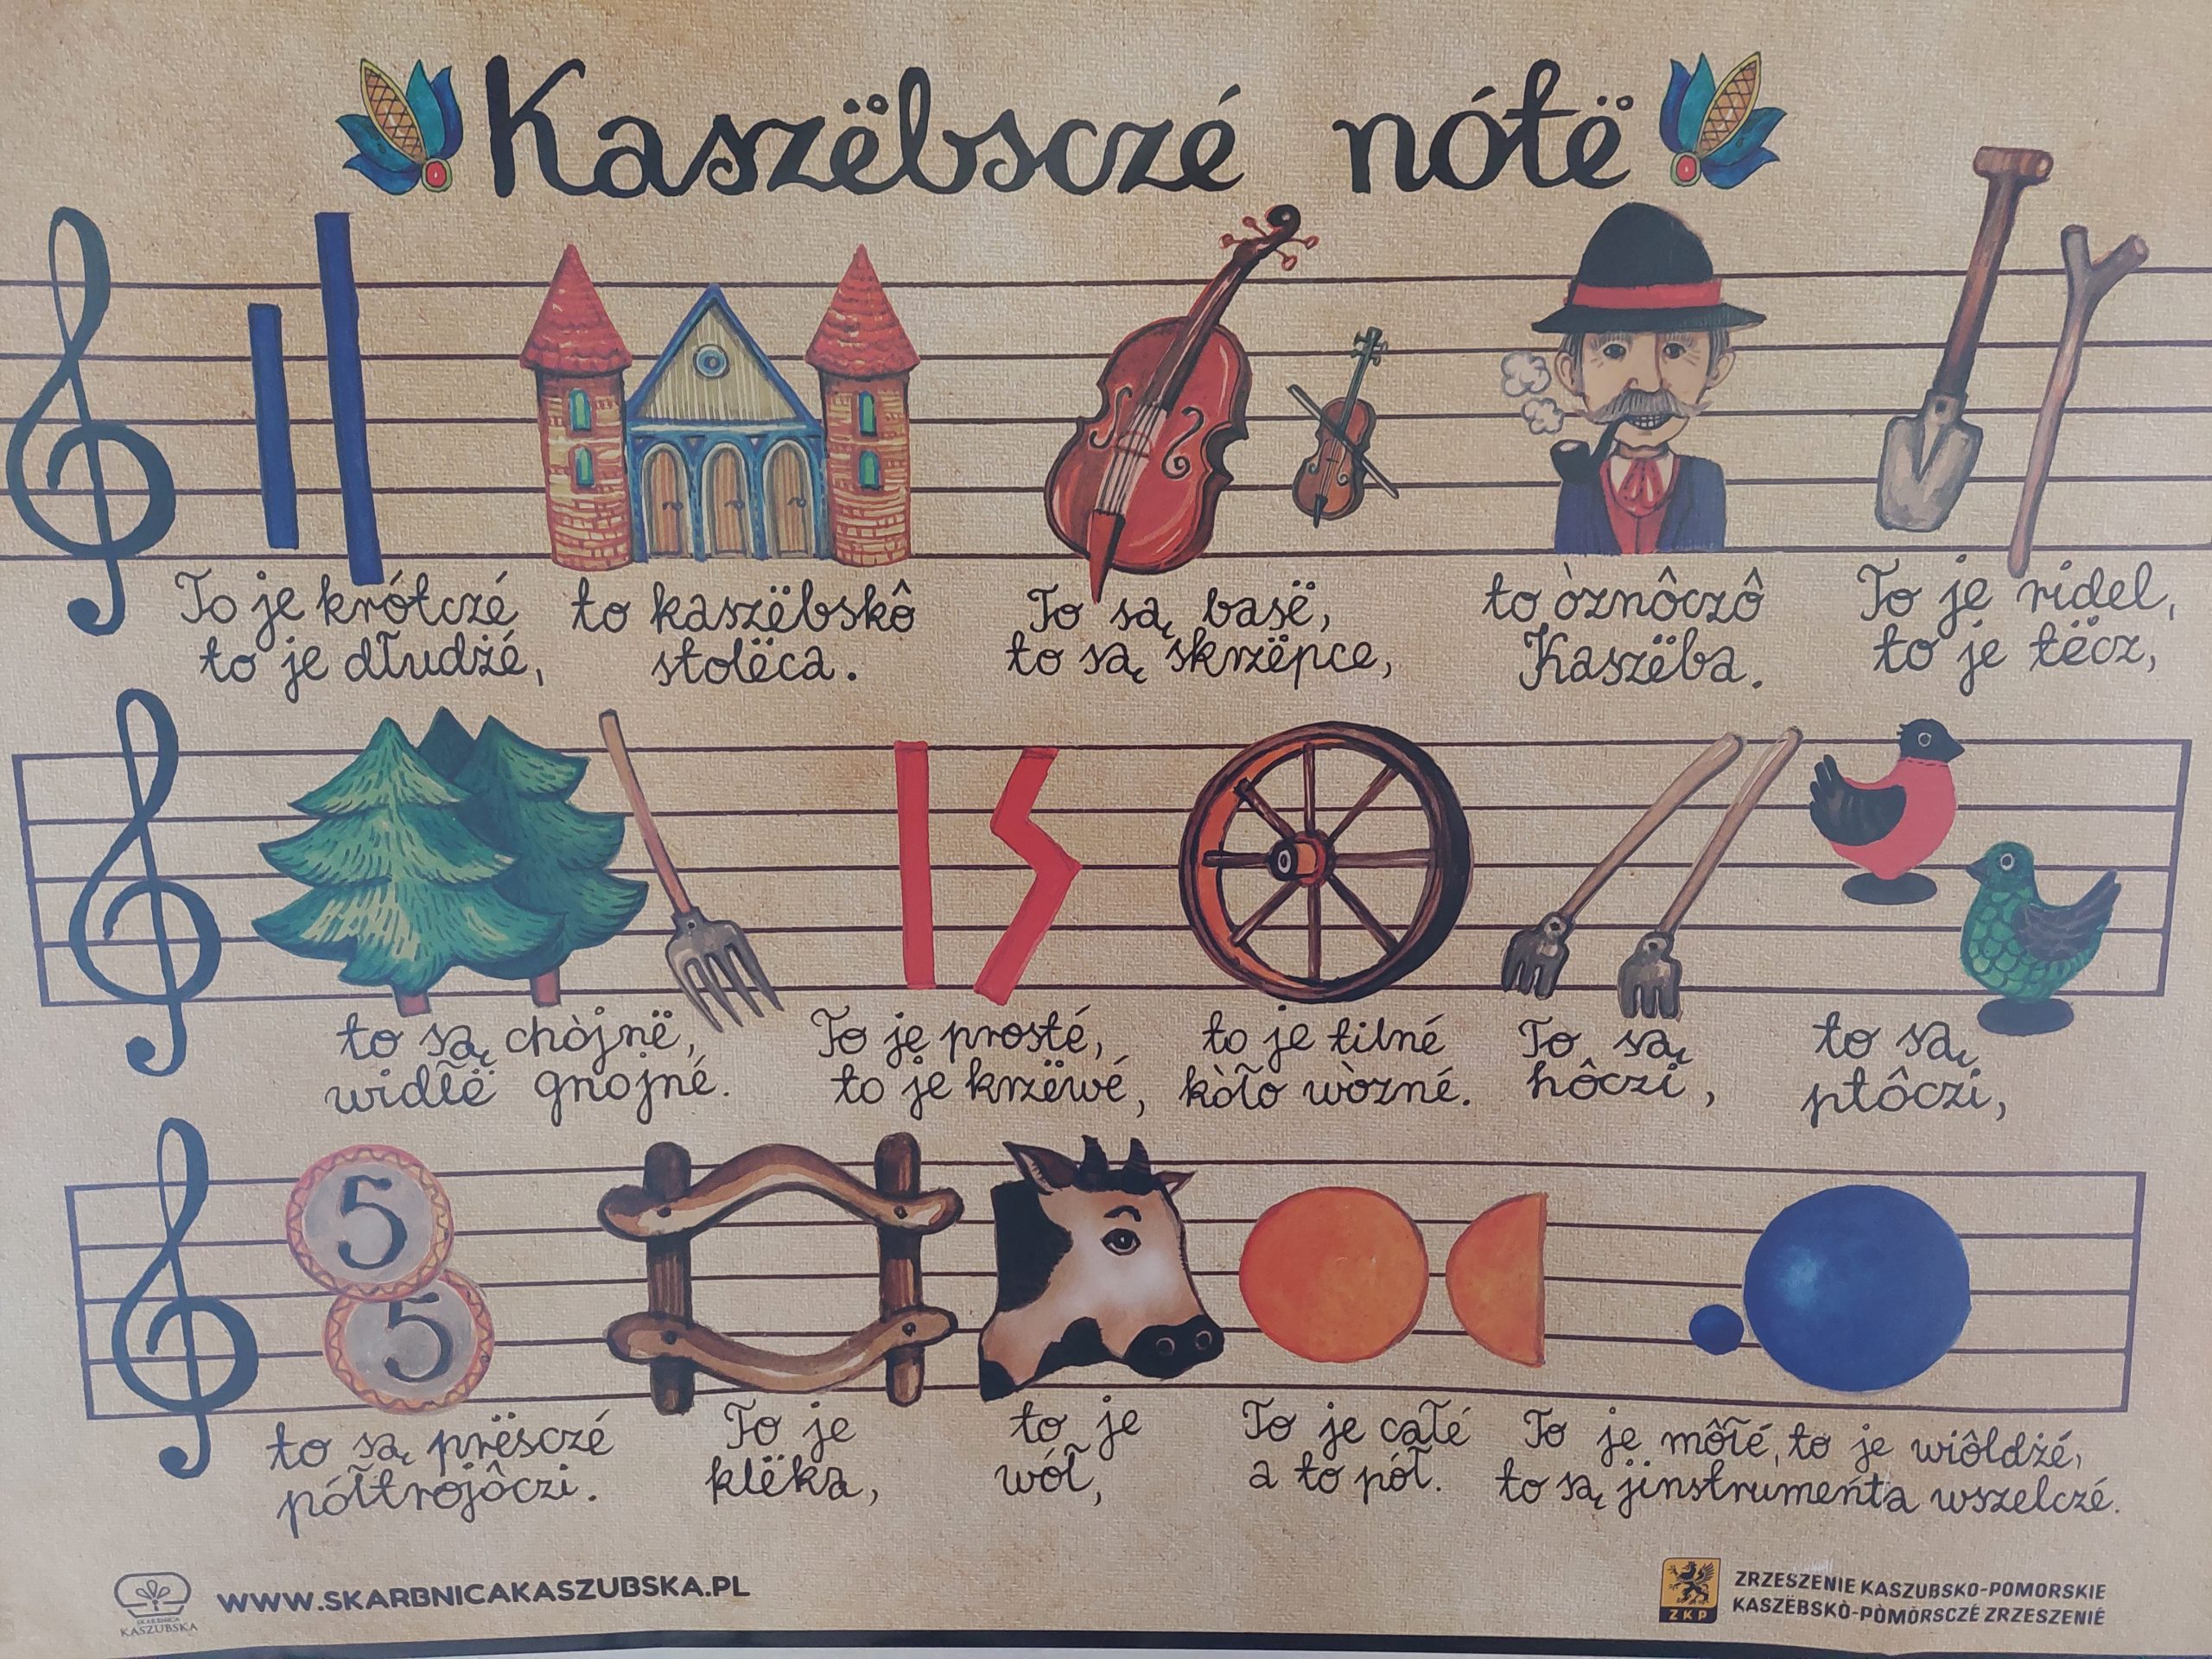 Kaszëbsczé nótë
To je krótczé
to je dłudżé,
to kaszëbskô
stolëca.
To są basë,
to są skrzëpce,
to òznôczô
Kaszëba.
To je ridel,
to je tëcz,
to są chòjnë,
widłë gnojné.
To je prosté,
to je krzëwé,
to je tilné
kòło wòzné.
To są
hôczi,
to są
ptôczi,
5
5
to są prësczé
półtrojôczi.
To je
klëka,
to je
wół,
To je całé
a to pół.
To je môłé, to je wiôldżé,
to są jinstrumeńta wszelczé.
SKARBNICA
KASZUBSKA
WWW.SKARBNICAKASZUBSKA.PL
ZKP
ZRZESZENIE KASZUBSKO-POMORSKIE
KASZËBSKÒ-PÒMÒRSCZÉ ZRZESZENIÉ